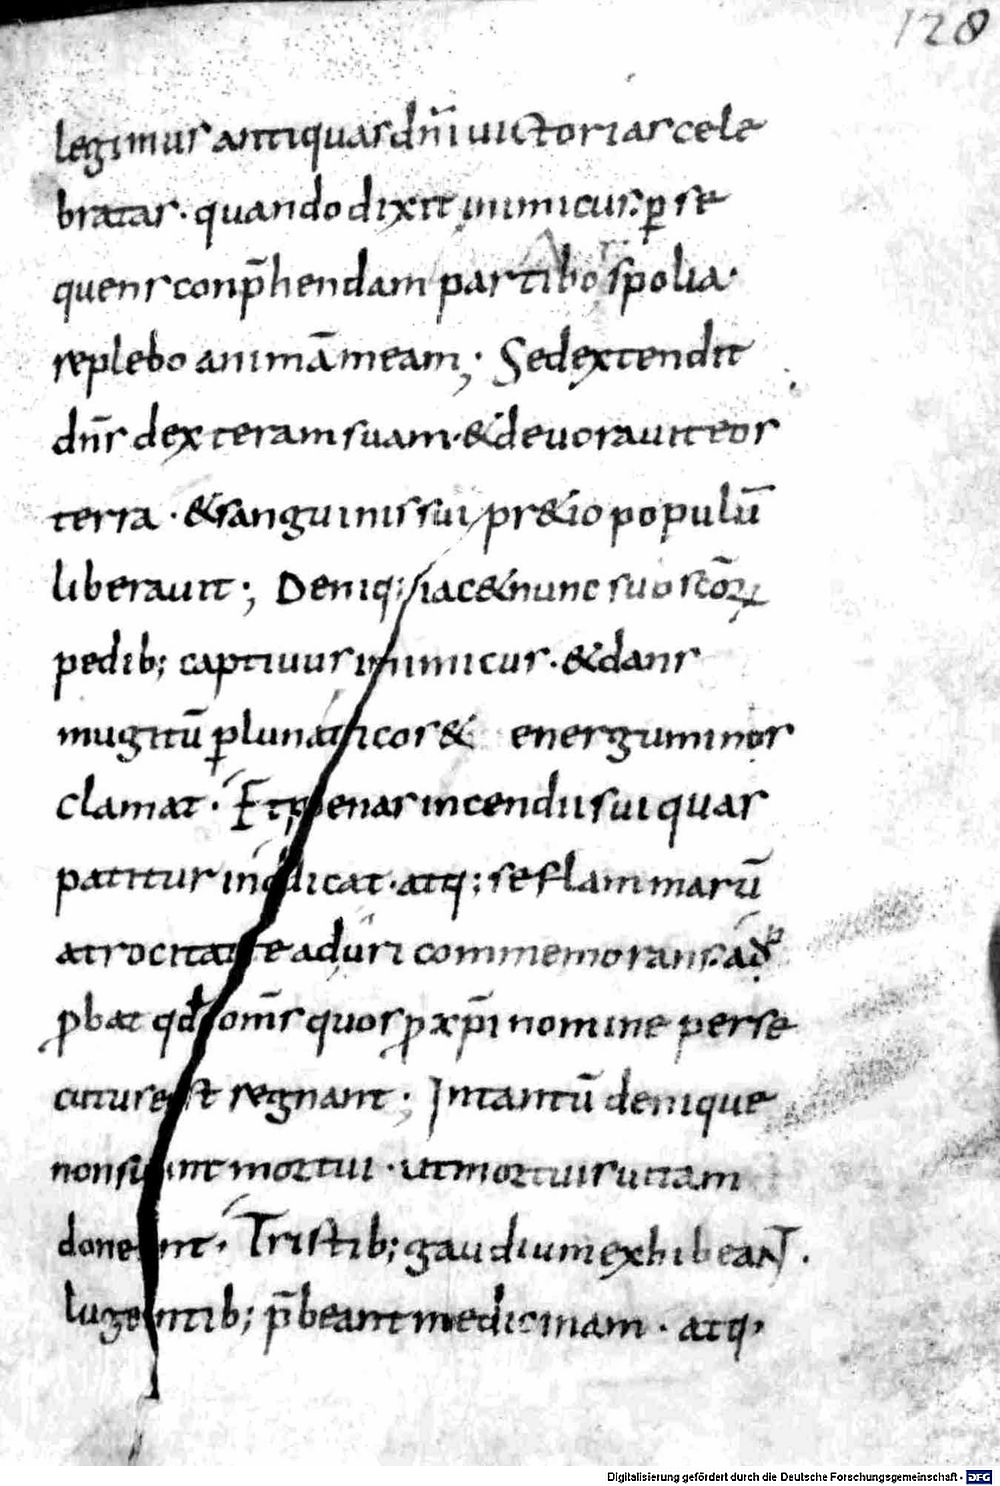 128
legimus antiquas dn̄i uictorias cele
bratas · quando dixit inimicus · p̱ se
quens conp̄hendam partibor spolia ·
replebo animā meam ; Sed extendit
dn̄s dexteram suam · & deuorauit eos
terra · & sanguinis sui pr&io populū
liberauit ; Deniq; iac& nunc sub sc̄oꝝ
pedib; captiuus inimicus · & dans
mugitū ꝑ lunaticos & energuminos
clamat · Et poenas incendii sui quas
patitur indicat · atq; se flammarū
atrocitate aduri commemorans · ad
ꝓbat qđ om̄s quos ꝓ xp̄i nomine perse
cutus est regnant ; Intantū denique
non sunt mortui · ut mortuis uitam
donent · Tristib; gaudium exhibeant ·
lugentib; p̄beant medicinam · atq;
Digitalisierung gefördert durch die Deutsche Forschungsgemeinschaft - DFG